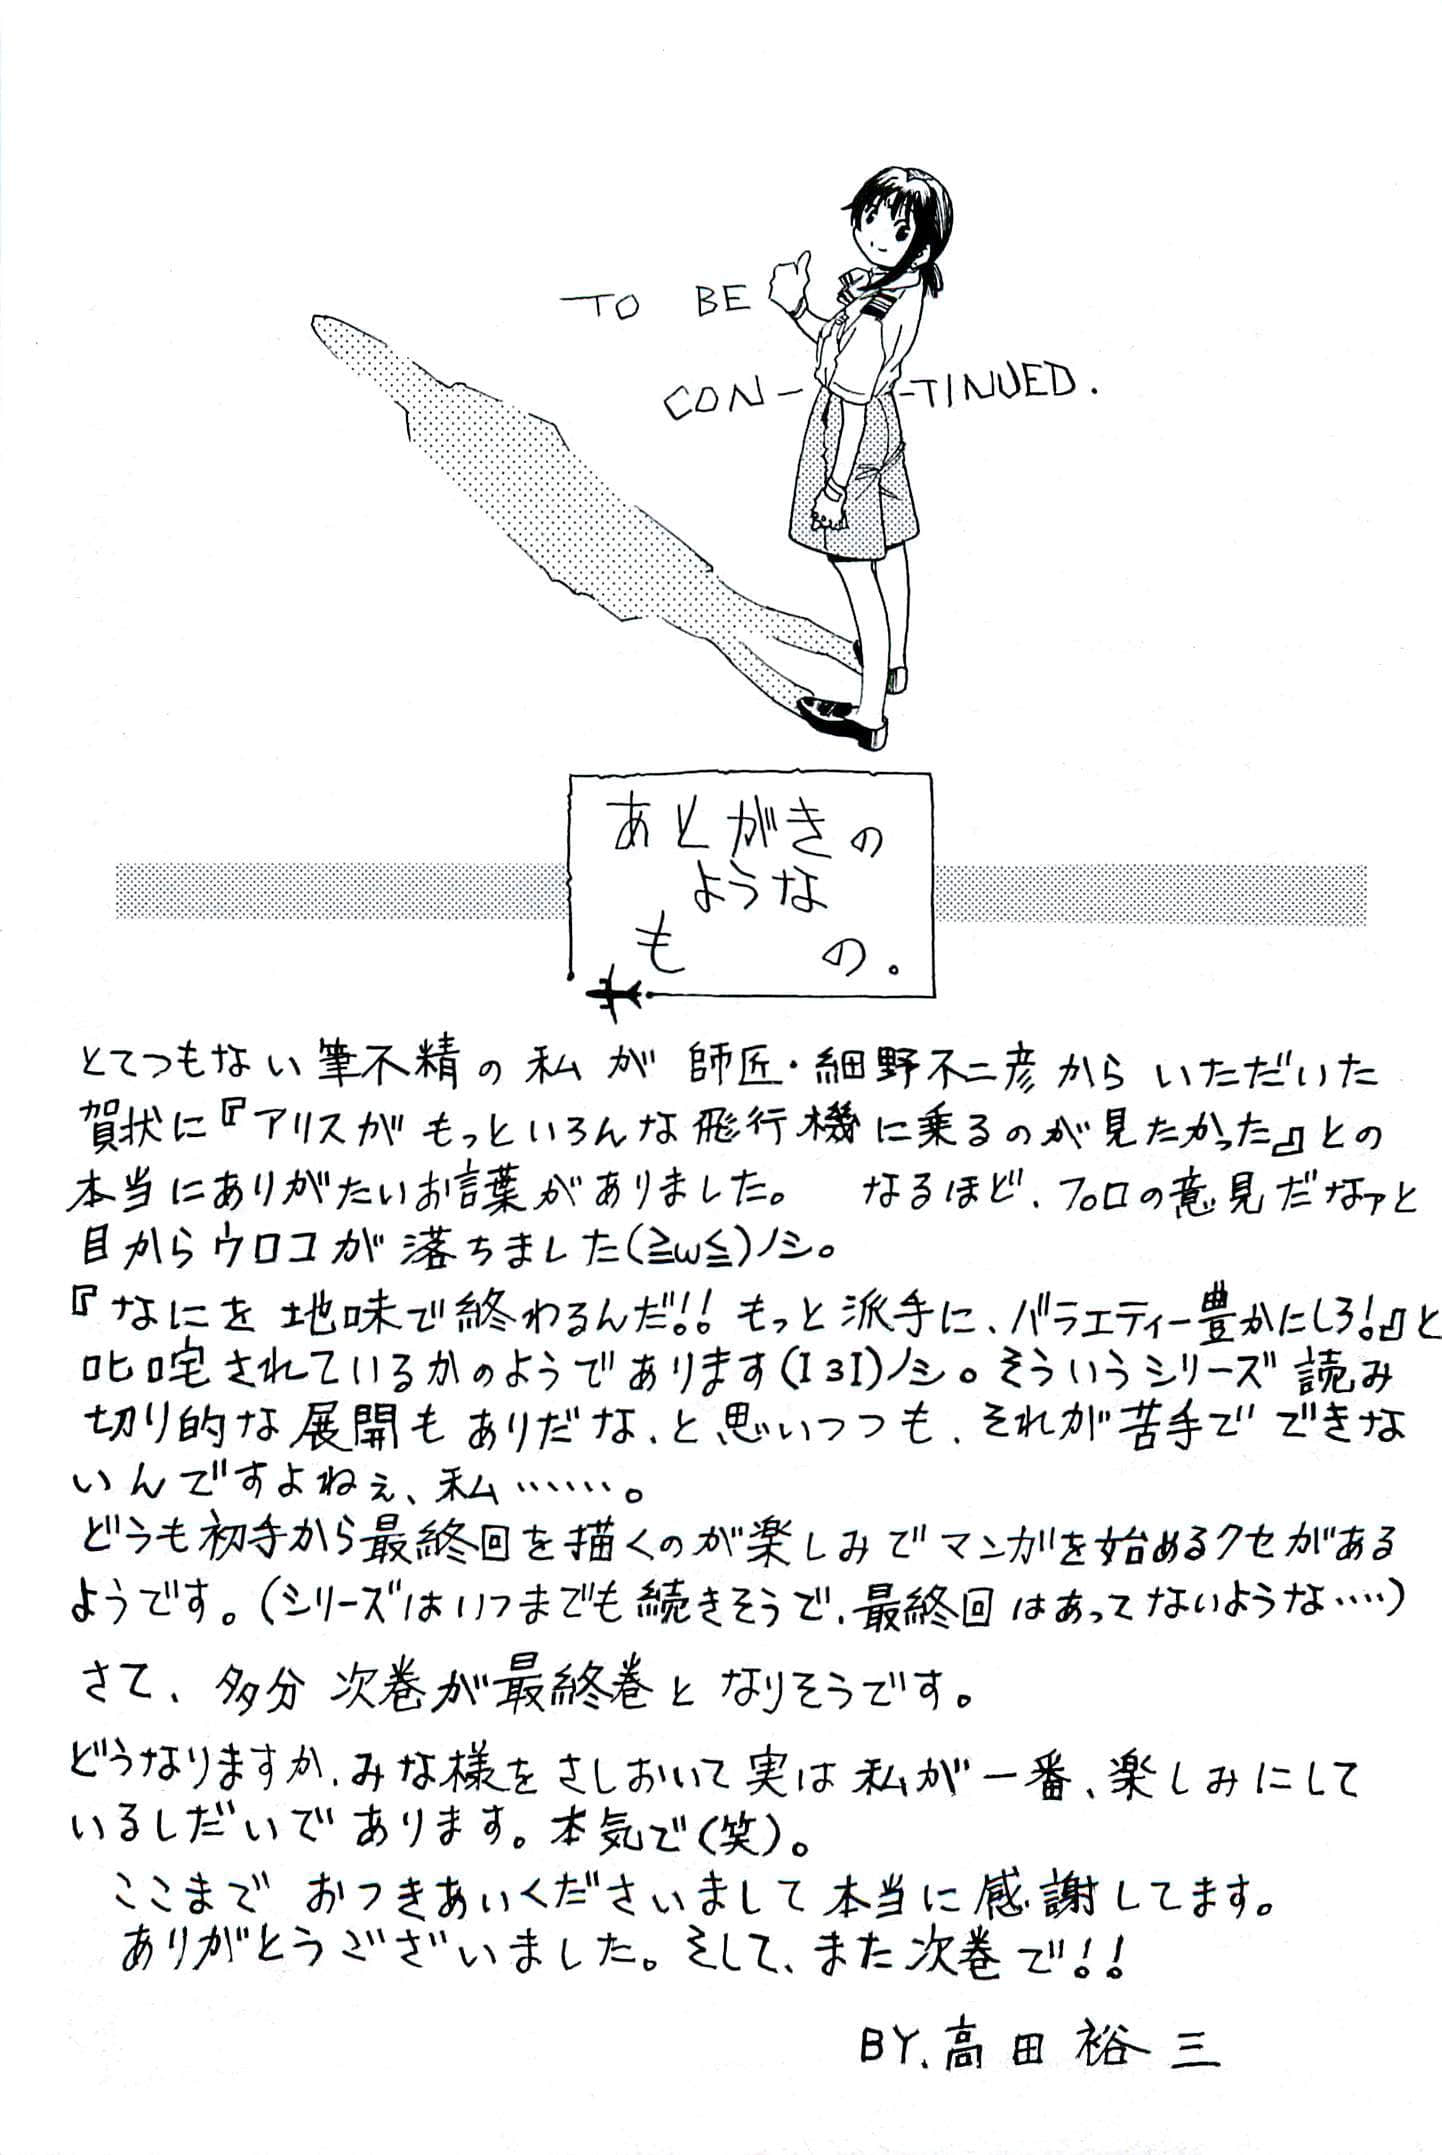 TO BE
CON- -TINUED.
あとがきの
ような
もの。
とてつもない筆不精の私が師匠・細野不二彦からいただいた
賀状に『アリスがもっといろんな飛行機に乗るのが見たかった』との
本当にありがたいお言葉がありました。 なるほど、プロの意見だなァと
目からウロコが落ちました(≧ω≦)ノシ。
『なにを地味で終わるんだ!!もっと派手に、バラエティー豊かにしろ!』と
叱咤されているかのようであります(I3I)ノシ。そういうシリーズ読み
切り的な展開もありだな、と思いつつも、それが苦手でできな
いんですよねぇ、私……。
どうも初手から最終回を描くのが楽しみでマンガを始めるクセがある
ようです。(シリーズはいつまでも続きそうで、最終回はあってないような‥‥)
さて、多分次巻が最終巻となりそうです。
どうなりますか、みな様をさしおいて実は私が一番、楽しみにして
いるしだいであります。本気で(笑)。
ここまでおつきあいくださいまして本当に感謝してます。
ありがとうございました。そして、また次巻で!!
BY.高田裕三